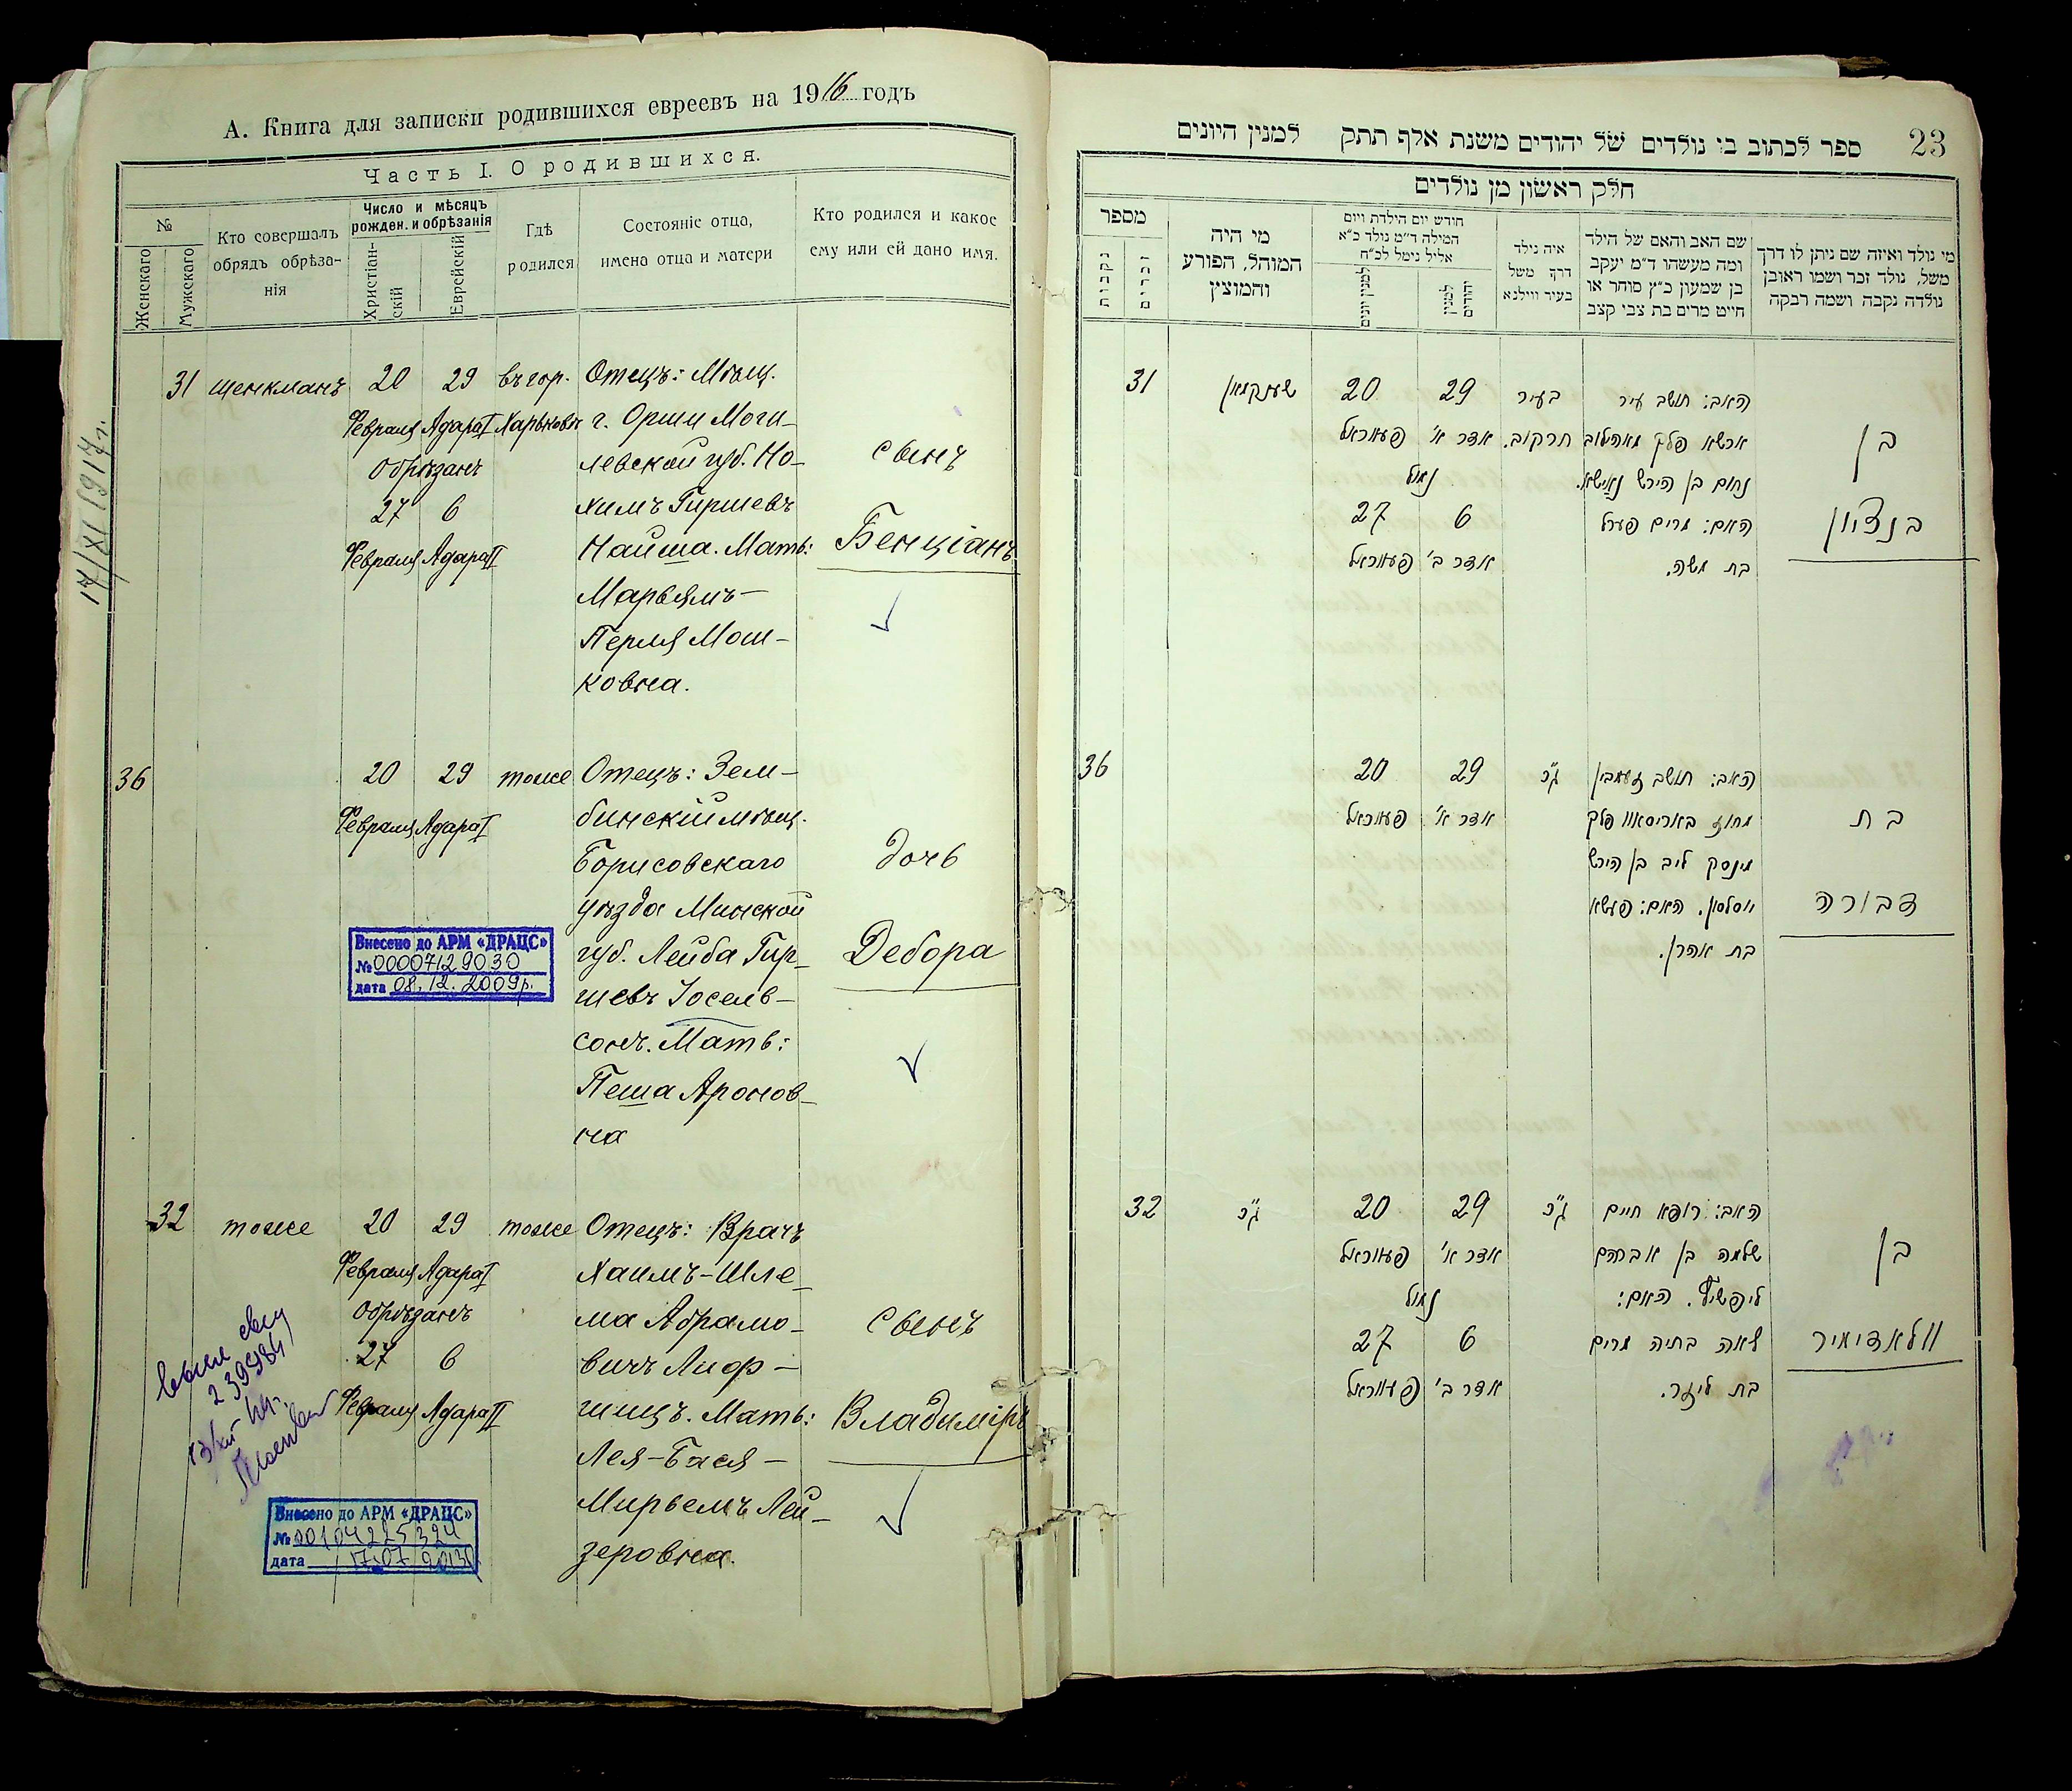 А. Книга для записки родившихся евреевъ на 1916 годъ
Часть I. О родившихся.
№
Женскаго
Мужескаго
Кто совершалъ
обрядъ обрѣза-
нія
Число и мѣсяцъ
рожден. и обрѣзанія
Христіан-
скій
Еврейскій
Гдѣ
родился
Состояніе отца,
имена отца и матери
Кто родился и какое
ему или ей дано имя.
17/XI 1917 г.
31 Шенкманъ 20 29 въ гор. Отецъ: Мѣщ.
Февраля Адара I Харьковѣ г. Орши Моги-
Обрѣзанъ левской губ. Но- сынъ
27 6 химъ Гиршевъ
Февраля Адара II Найша. Мать: Бенціанъ
Марьямъ-
Перля Мош-
ковна.
36 20 29 тоже Отецъ: Зем-
Февраля Адара I бинскій мѣщ.
Борисовскаго дочь
уѣзда Минской
губ. Лейба Гир- Дебора
шевъ Іосель-
сонъ. Мать:
Пеша Аронов-
на
Внесено до АРМ «ДРАЦС»
№ 00007129030
дата 08.12.2009р.
32 тоже 20 29 тоже Отецъ: Врачъ
Февраля Адара I Хаимъ-Шле-
Обрѣзанъ ма Абрамо- сынъ
27 6 вичъ Лиф-
Февраля Адара II шицъ. Мать: Владиміръ
Лея-Бася-
Мирьемъ Лей-
зеровна.
Внесено до АРМ «ДРАЦС»
№ 00104225324
дата 17.07
23
ספר לכתוב בו נולדים של יהודים משנת אלף תתק למנין היונים
חלק ראשון מן נולדים
מספר
נקבות
זכרים
מי היה
המוהל, הפורע
והמוצץ
חודש יום הילדת ויום
המילה ד״מ נולד כ״א
אליל נימל לכ״ח
למנין יונים
למנין
יהודים
איה נילד
דרך משל
בעיר ווילנא
שם האב והאם של הילד
ומה מעשהו ד״מ יעקב
בן שמעון כ״ץ סוחר או
חייט מרים בת צבי קצב
מי נולד ואיזה שם ניתן לו דרך
משל, נולד זכר ושמו ראובן
נולדה נקבה ושמה רבקה
31 שענקמאן 20 29 בעיר האב: תושב עיר
פעווראל אדר א׳ חרקוב. ארשא פלך מאהילוב בן
נמול נחום בן הירש נאישא.
27 6 האם: מרים פערל בנציון
פעווראל אדר ב׳ בת משה.
36 20 29 ג״כ האב: תושב זעמבין
פעווראל אדר א׳ מחוז באריסאוו פלך בת
מינסק ליב בן הירש
יוסלסון. האם: פעשא דבורה
בת אהרן.
32 ג״כ 20 29 ג״כ האב: רופא חיים
פעווראל אדר א׳ שלמה בן אברהם בן
נמול ליפשיץ. האם:
27 6 לאה בתיה מרים וולאדימיר
פעווראל אדר ב׳ בת ליזר.